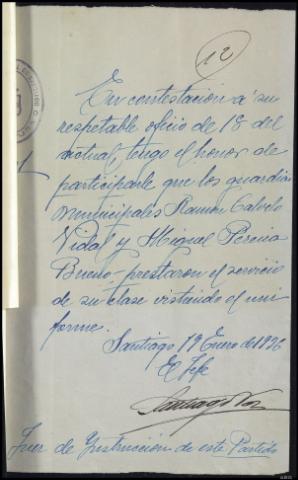 12
En contestación á su
respetable oficio de 18 del
actual, tengo el honor de
participarle que los guardias
municipales Ramón Calvelo
Vidal y Miguel Pereira
Bueno prestaron el servicio
de su clase vistiendo el uni
forme.
Santiago 19 Enero de 1926
El Jefe
Santiago
Juez de Instrucción de este Partido